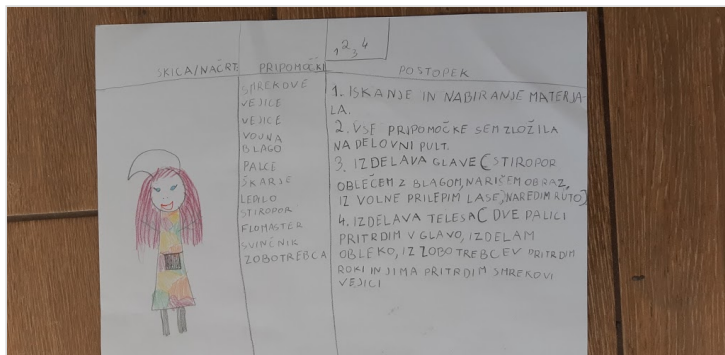 1, 2, 3, 4
SKICA/NAČRT
PRIPOMOČKI
POSTOPEK
SMREKOVE
VEJICE
VEJICE
VOLNA
BLAGO
PALCE
ŠKARJE
LEPILO
STIROPOR
FLOMASTER
SVINČNIK
ZOBOTREBCA
1. ISKANJE IN NABIRANJE MATERJA-
LA.
2. VSE PRIPOMOČKE SEM ZLOŽILA
NA DELOVNI PULT.
3. IZDELAVA GLAVE (STIROPOR
OBLEČEM Z BLAGOM, NARIŠEM OBRAZ,
IZ VOLNE PRILEPIM LASE, NAREDIM RUTO)
4. IZDELAVA TELESA( DVE PALICI
PRITRDIM V GLAVO, IZDELAM
OBLEKO, IZ ZOBOTREBCEV PRITRDIM
ROKI IN JIMA PRITRDIM SMREKOVI
VEJICI